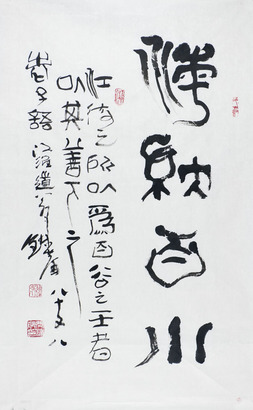 海納百川
江海之所以爲百谷之王者
以其善下之
老子語 八十又八